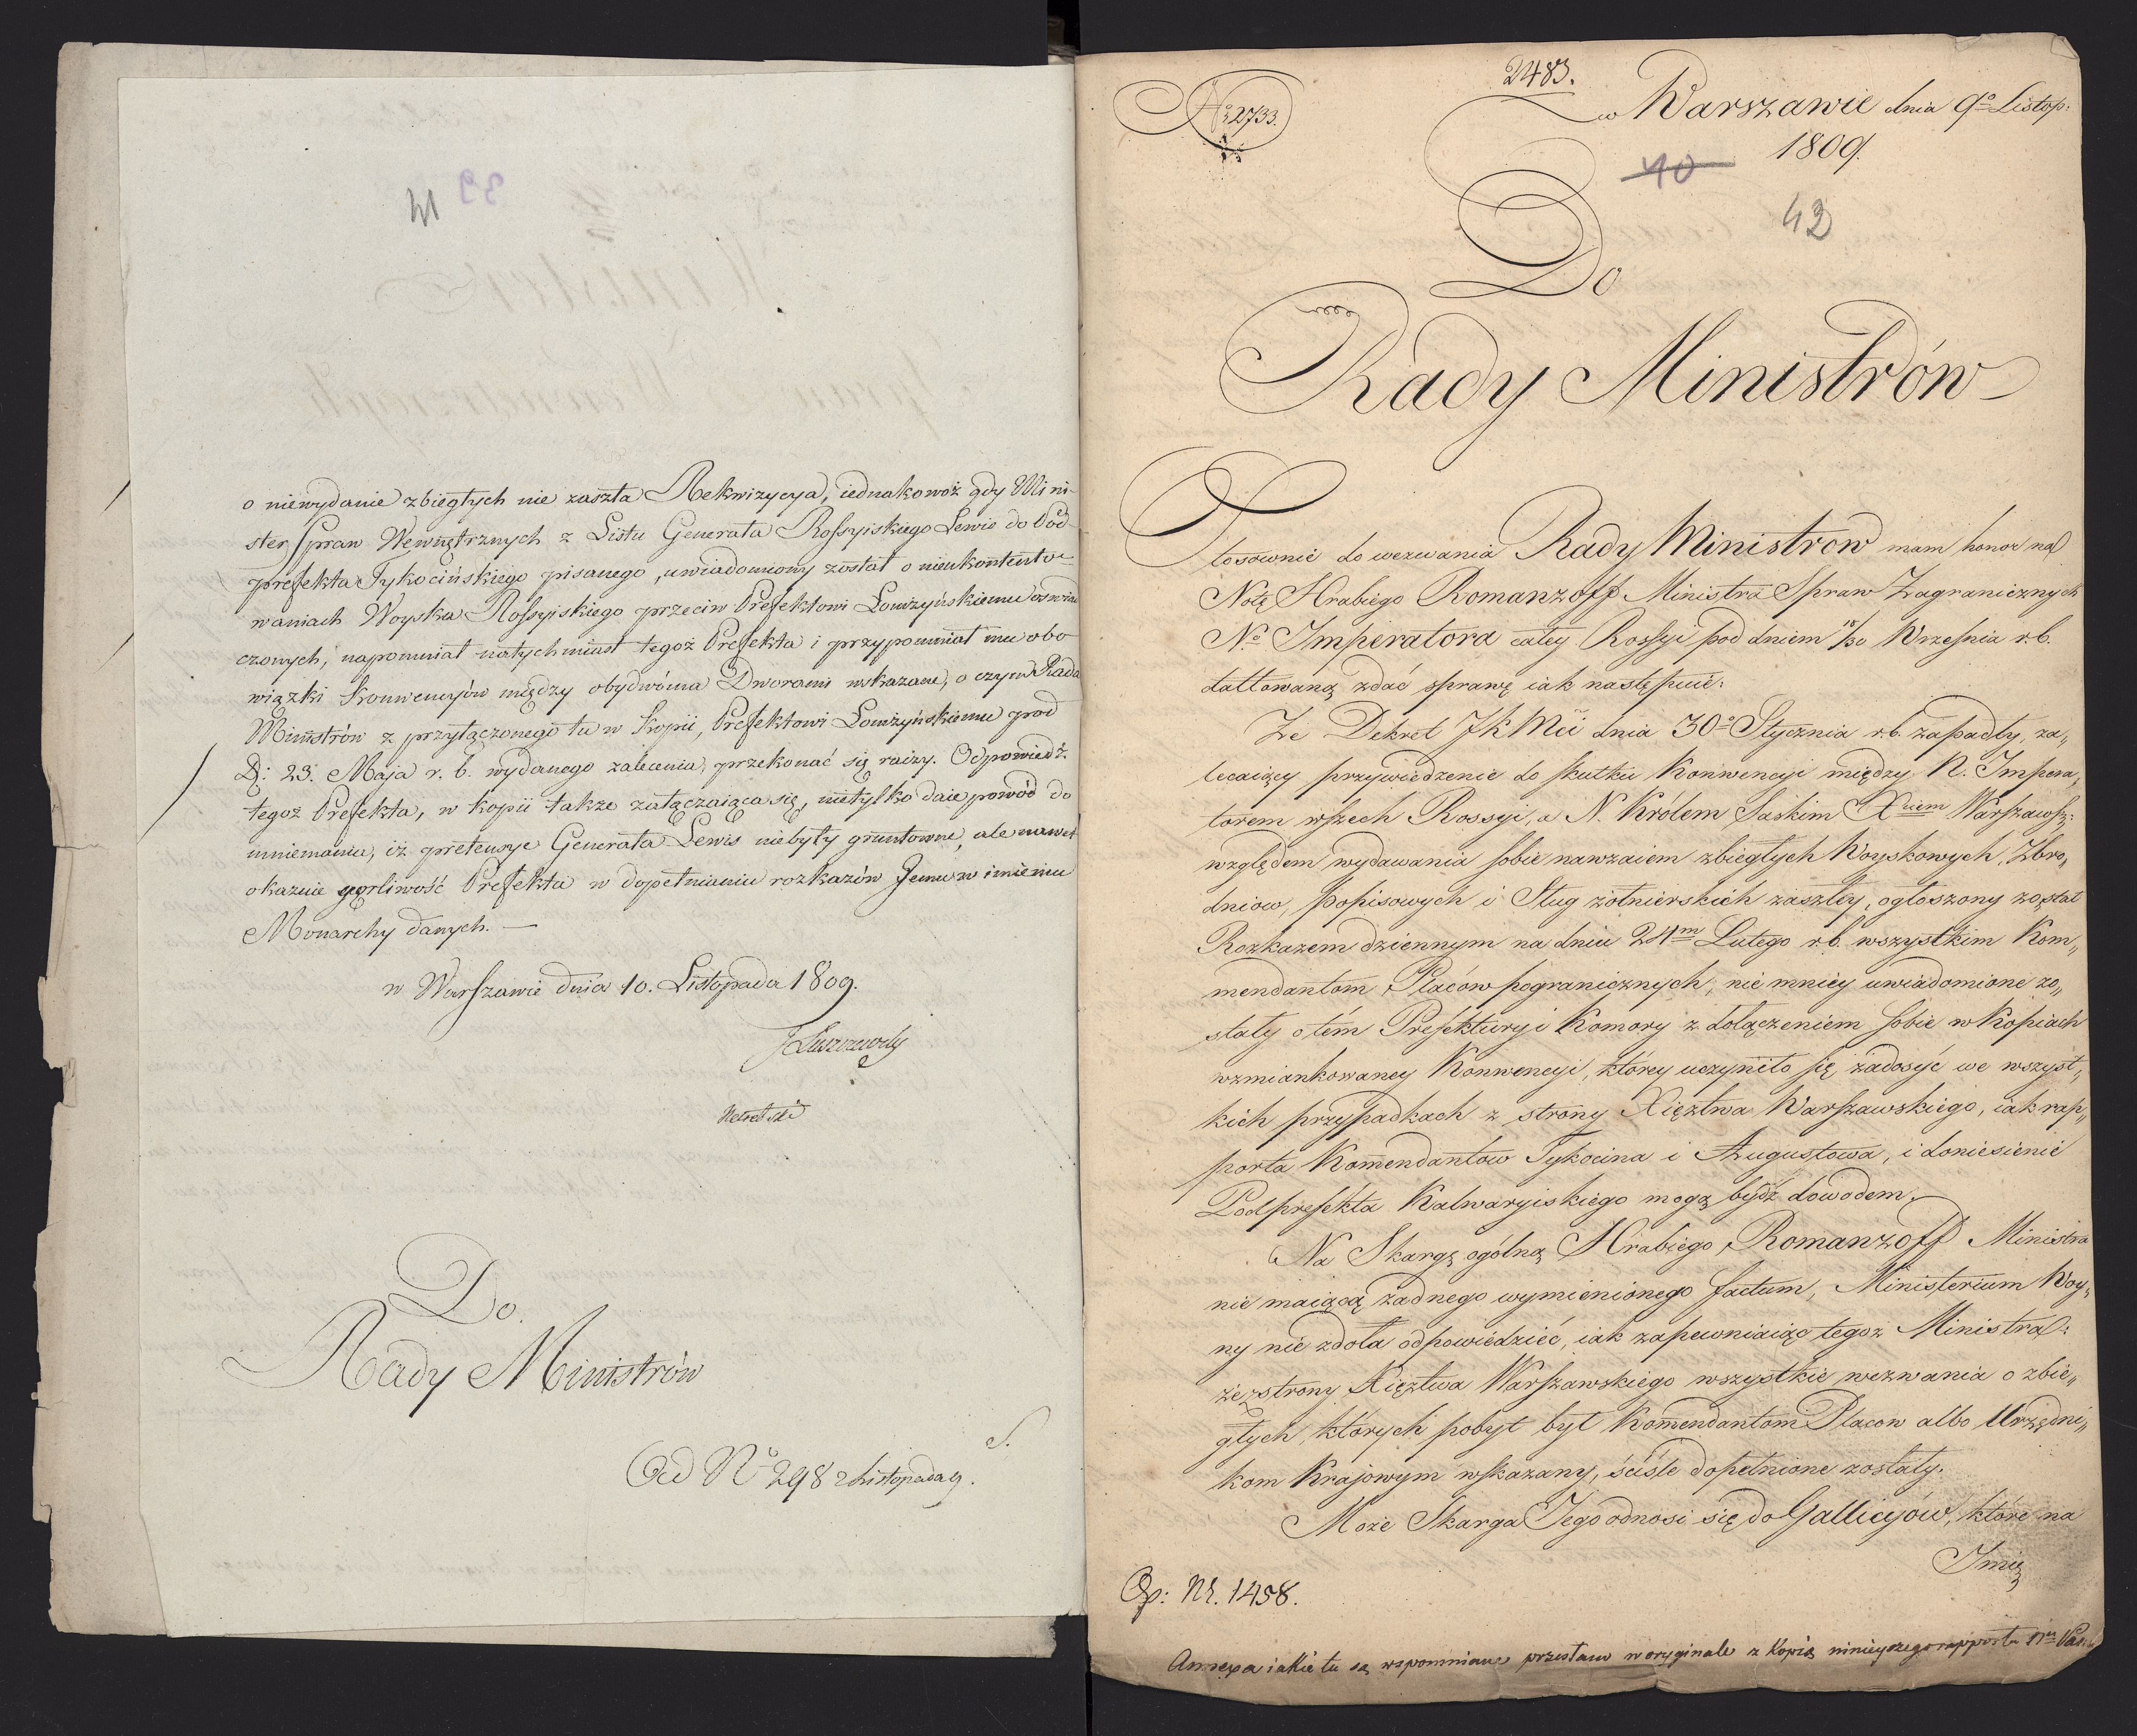 41 39
o niewydanie zbiegłych nie zaszła Rekwizycya, iednakowoż gdy Mini-
ster Spraw Wewnętrznych z Listu Generała Rossyiskiego Lewis do Pod-
prefekta Tykocińskiego pisanego, uwiadomiony został o nieukontento-
waniach Woyska Rossyiskiego przeciw Prefektowi Łomżyńskiemu oświad
czonych, napomniał natychmiast tegoż Prefekta i przypomniał mu obo
wiązki Konwencyów między obydwóma Dworami wskazane, o czym Rada
Ministrów z przyłączonego tu w Kopii, Prefektowi Łomżyńskiemu pod
D: 23. Maja r. b. wydanego zalecenia, przekonać się raczy. Odpowiedź
tegoż Prefekta, w kopii także załączaiąca się, nietylko daie powód do
mniemania, iż pretensye Generała Lewis niebyły gruntowne, ale nawet
okazuie gorliwość Prefekta w dopełnianiu rozkazów Jemu w imieniu
Monarchy danych. —
w Warszawie dnia 10. Listopada 1809.
J Łuszczewsky
Do
Rady Ministrów
S.
Ad No 298 2 Listopada 9.
2483.
No 2733.
w Warszawie dnia 9o Listop:
1809.
40
42
Do
Rady Ministrów
Stosownie do wezwania Rady Ministrow mam honor na
Notę Hrabiego Romanzoff Ministra Spraw Zagranicznych
No Imperatora całey Rossyi pod dniem 18/30 Września r.b.
dattowaną zdać sprawę iak następuie:
Że Dekret JKMci dnia 30o Stycznia r.b. zapadły, za„
lecaiący przywiedzenie do skutku Konwencyi między N. Impera„
torem wszech Rossyi, a N. Królem Saskim Xciem Warszaws:
względem wydawania sobie nawzaiem zbiegłych Woyskowych, Zbro„
dniow, popisowych i Sług żołnierskich zaszłey, ogłoszony został
Rozkazem dziennym na dniu 24m Lutego r.b. wszystkim Kom„
mendantom Placów pogranicznych, nie mniey uwiadomione zo„
stały o tém Prefektury i Komory z dołączeniem sobie w Kopiach
wzmiankowaney Konwencyi, którey uczyniło się zadosyć we wszyst„
kich przypadkach z strony Xięztwa Warszawskiego, iak rap„
porta Komendantow Tykocina i Augustowa, i doniesienie
Podprefekta Kalwaryiskiego mogą bydź dowodem.
Na Skargę ogólną Hrabiego Romanzoff Ministra
nie maiącą żadnego wymienionego factum, Ministerium Woy„
ny nie zdoła odpowiedzieć, iak zapewniaiąc tegoż Ministra:
że z strony Xięztwa Warszawskiego wszystkie wezwania o zbie„
głych, których pobyt był Komendantom Placow albo Urzędni„
kom Krajowym wskazany, ściśle dopełnione zostały.
Może Skarga Jego odnosi się do Gallicyów, które na
Imię
Exp: Nr. 1458.
Annexa iakie tu są wspomniane przesłano w oryginale z Kopią ninieyszego rapportu